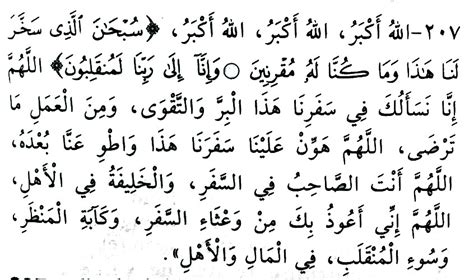 ٢٠٧-اللهُ أَكْبَرُ، اللهُ أَكْبَرُ، اللهُ أَكْبَرُ، ﴿سُبْحَٰنَ ٱلَّذِى سَخَّرَ
لَنَا هَٰذَا وَمَا كُنَّا لَهُۥ مُقْرِنِينَ ○ وَإِنَّآ إِلَىٰ رَبِّنَا لَمُنقَلِبُونَ﴾ اللَّهُمَّ
إِنَّا نَسَأَلُكَ فِي سَفَرِنَا هَذَا الْبِرَّ وَالتَّقْوَى، وَمِنَ الْعَمَلِ مَا
تَرْضَى، اللَّهُمَّ هَوِّنْ عَلَيْنَا سَفَرَنَا هَذَا وَاطْوِ عَنَّا بُعْدَهُ،
اللَّهُمَّ أَنْتَ الصَّاحِبُ فِي السَّفَرِ، وَالْخَلِيفَةُ فِي الْأَهْلِ،
اللَّهُمَّ إِنِّي أَعُوذُ بِكَ مِنْ وَعْثَاءِ السَّفَرِ، وَكَآبَةِ الْمَنْظَرِ،
وَسُوءِ الْمُنْقَلَبِ، فِي الْمَالِ وَالْأَهْلِ».